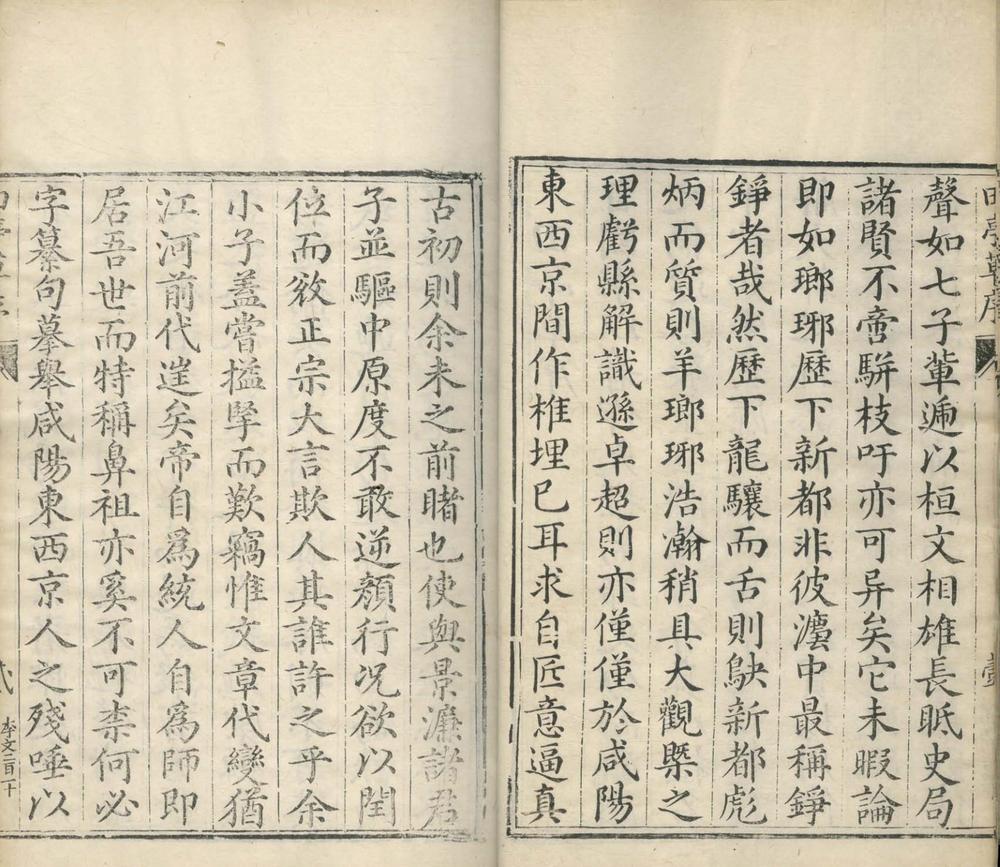 田亭草序
壹
聲如七子軰遞以桓文相雄長眡史局
諸賢不啻駢枝吁亦可异矣它未暇論
即如瑯琊歷下新都非彼瀍中最稱錚
錚者哉然歷下龍驤而舌則鴃新都彪
炳而質則羊瑯琊浩瀚稍具大觀槩之
理虧縣解識遜卓超則亦僅僅於咸陽
東西京間作椎埋已耳求自匠意逼真
古初則余未之前睹也使與景濂諸君
子並驅中原度不敢逆顏行况欲以閏
位而敓正宗大言欺人其誰許之乎余
小子蓋嘗搤掔而歎竊惟文章代變猶
江河前代逹矣帝自爲統人自爲師即
居吾世而特稱鼻祖亦奚不可柰何必
字纂句摹舉咸陽東西京人之殘唾以
李文三百二十